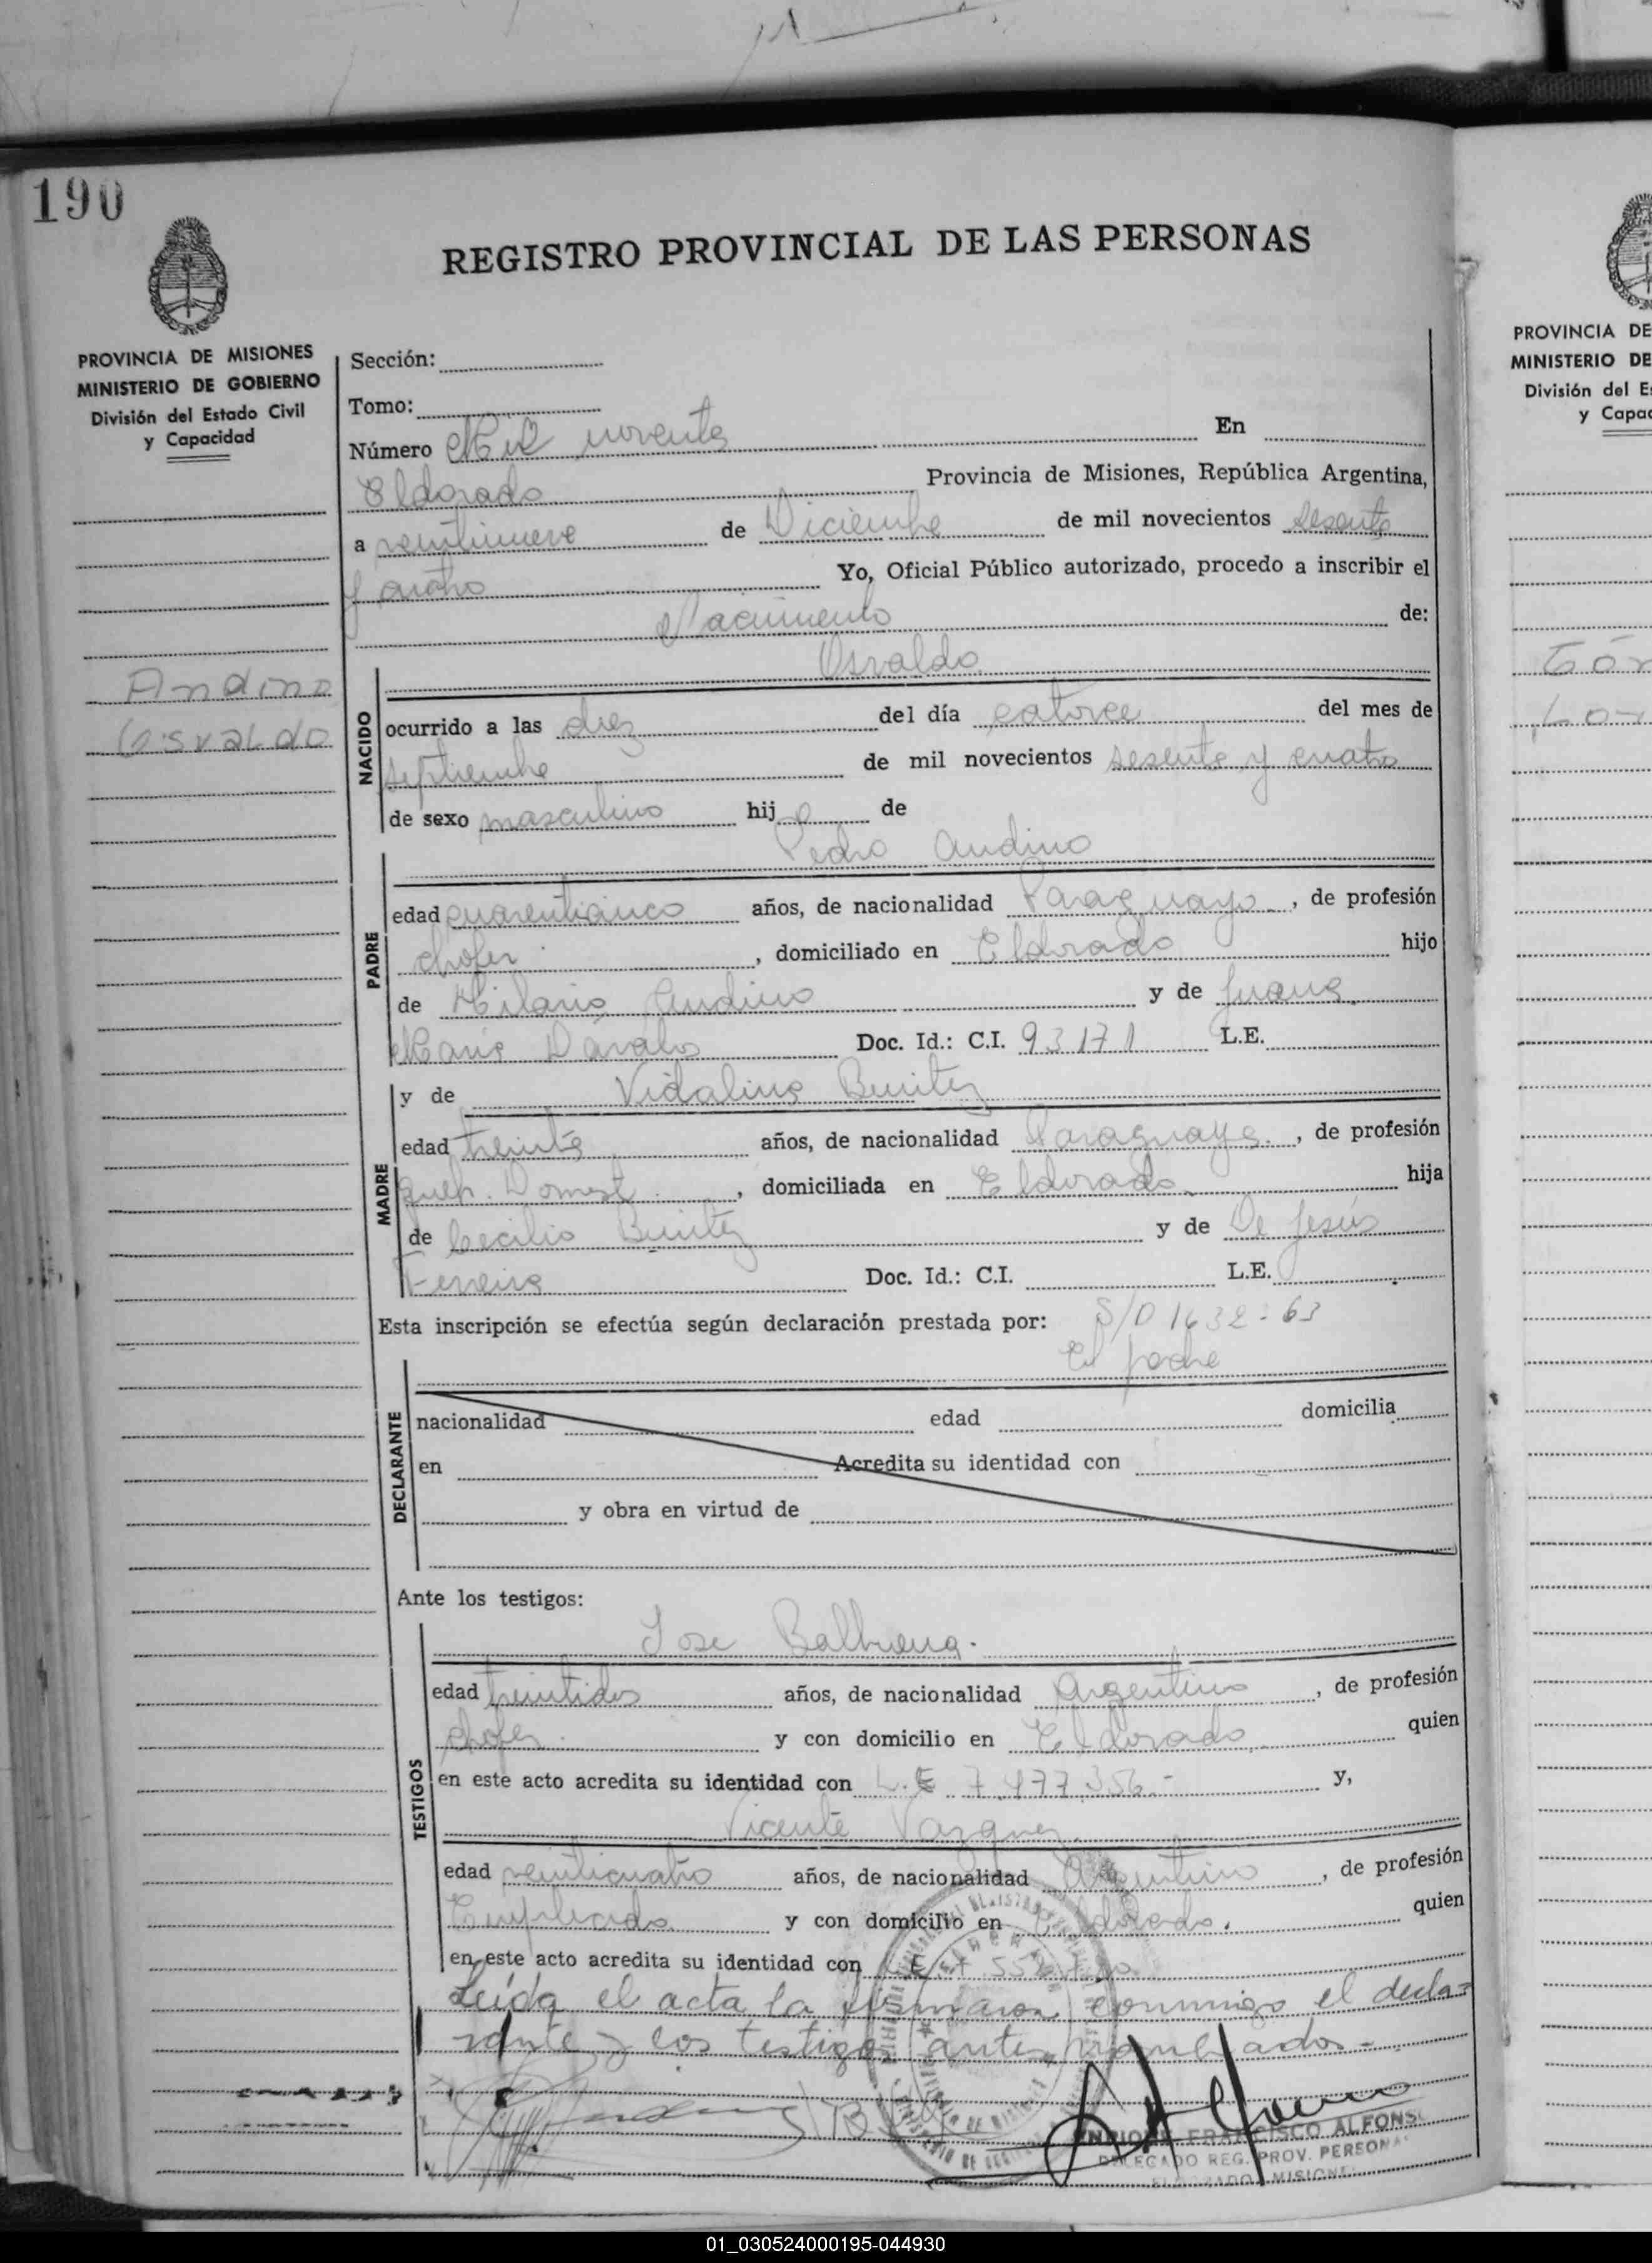 190
REGISTRO PROVINCIAL DE LAS PERSONAS
PROVINCIA DE MISIONES
MINISTERIO DE GOBIERNO
División del Estado Civil
y Capacidad
Andino
Osvaldo
Sección:
Tomo:
Número Mil noventa En
Eldorado Provincia de Misiones, República Argentina,
a veintinueve de Diciembre de mil novecientos sesenta
y cuatro Yo, Oficial Público autorizado, procedo a inscribir el
Nacimiento de:
NACIDO
Osvaldo
ocurrido a las diez del día catorce del mes de
septiembre de mil novecientos sesenta y cuatro
de sexo masculino hijo de
PADRE
Pedro Andino
edad cuarenticinco años, de nacionalidad Paraguayo, de profesión
chofer, domiciliado en Eldorado hijo
de Hilario Andino y de Juana
Maria Davalos Doc. Id.: C.I. 93171 L.E.
MADRE
y de Vidalina Benitez
edad treinta años, de nacionalidad Paraguaya, de profesión
queh. Domest., domiciliada en Eldorado hija
de Cecilio Benitez y de De Jesús
Ferreira Doc. Id.: C.I. L.E.
Esta inscripción se efectúa según declaración prestada por: S/D 1632-63
El padre
DECLARANTE
nacionalidad edad domicilia
en Acredita su identidad con
y obra en virtud de
Ante los testigos:
TESTIGOS
Jose Balbuena.
edad treintidos años, de nacionalidad Argentino, de profesión
chofer. y con domicilio en Eldorado quien
en este acto acredita su identidad con L.E 7.477.356.- y,
Vicente Vazquez
edad veinticuatro años, de nacionalidad Argentino, de profesión
Empleado y con domicilio en Eldorado. quien
en este acto acredita su identidad con L.E 7.55
Leída el acta la firmaron conmigo el decla=
rante y los testigos antes nombrados.=
ENRIQUE FRANCISCO ALFONSO
DELEGADO REG. PROV. PERSONAS
ELDORADO MISIONES
PROVINCIA DE
MINISTERIO DE
División del E
y Capac
01_030524000195-044930